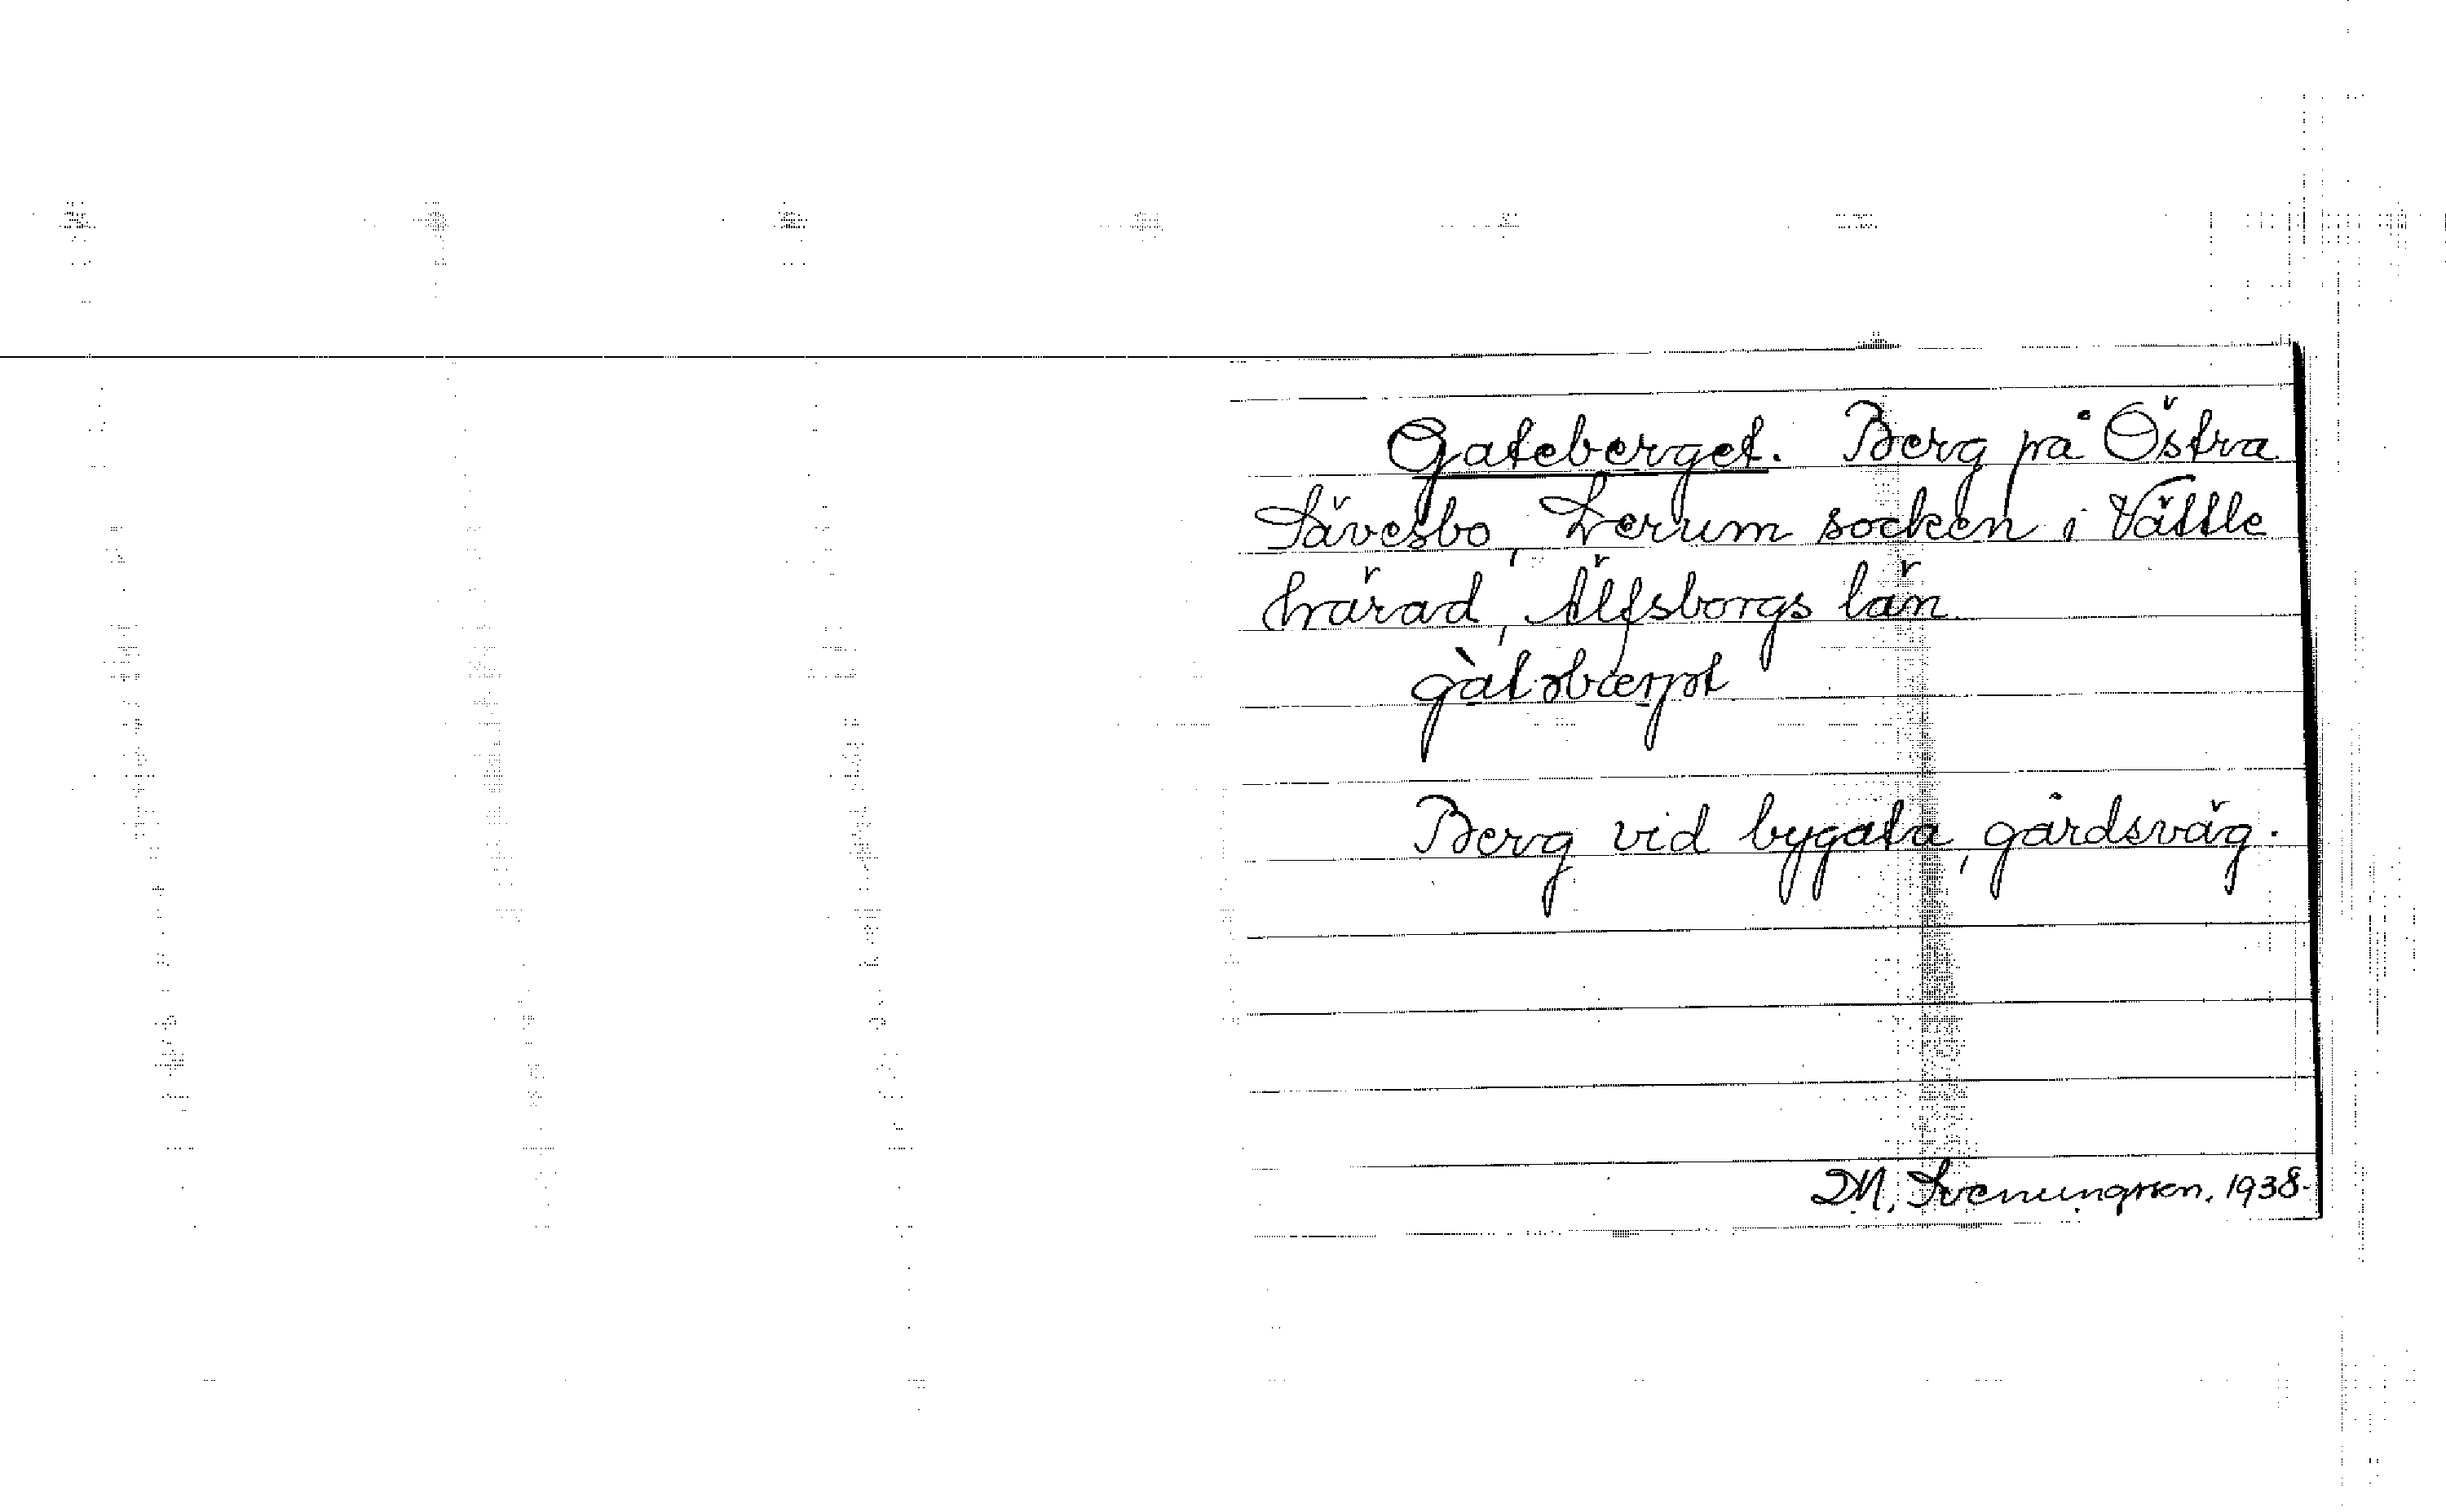 Gateberget. Berg på Östra
Sävesbo, Lerum socken i Vättle
härad, Älfsborgs län.
gàt əbærjət
Berg vid bygata, gårdsväg.
M. Svenungsson. 1938.